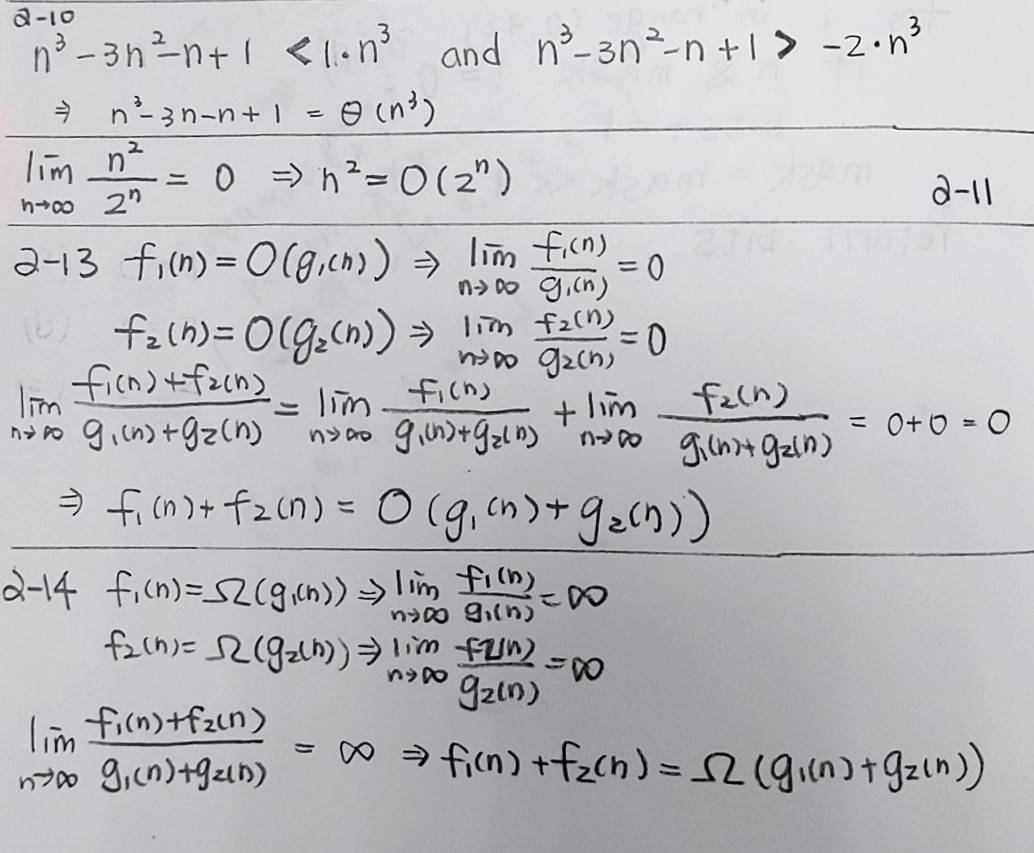 2-10
n³ - 3n² - n + 1 < 1·n³ and n³ - 3n² - n + 1 > -2·n³
⇒ n³ - 3n - n + 1 = Θ(n³)
lim n→∞ n²/2ⁿ = 0 ⇒ n² = O(2ⁿ) 2-11
2-13 f₁(n) = O(g₁(n)) ⇒ lim n→∞ f₁(n)/g₁(n) = 0
f₂(n) = O(g₂(n)) ⇒ lim n→∞ f₂(n)/g₂(n) = 0
lim n→∞ (f₁(n)+f₂(n))/(g₁(n)+g₂(n)) = lim n→∞ f₁(n)/(g₁(n)+g₂(n)) + lim n→∞ f₂(n)/(g₁(n)+g₂(n)) = 0+0 = 0
⇒ f₁(n) + f₂(n) = O(g₁(n) + g₂(n))
2-14 f₁(n) = Ω(g₁(n)) ⇒ lim n→∞ f₁(n)/g₁(n) = ∞
f₂(n) = Ω(g₂(n)) ⇒ lim n→∞ f₂(n)/g₂(n) = ∞
lim n→∞ (f₁(n)+f₂(n))/(g₁(n)+g₂(n)) = ∞ ⇒ f₁(n) + f₂(n) = Ω(g₁(n) + g₂(n))